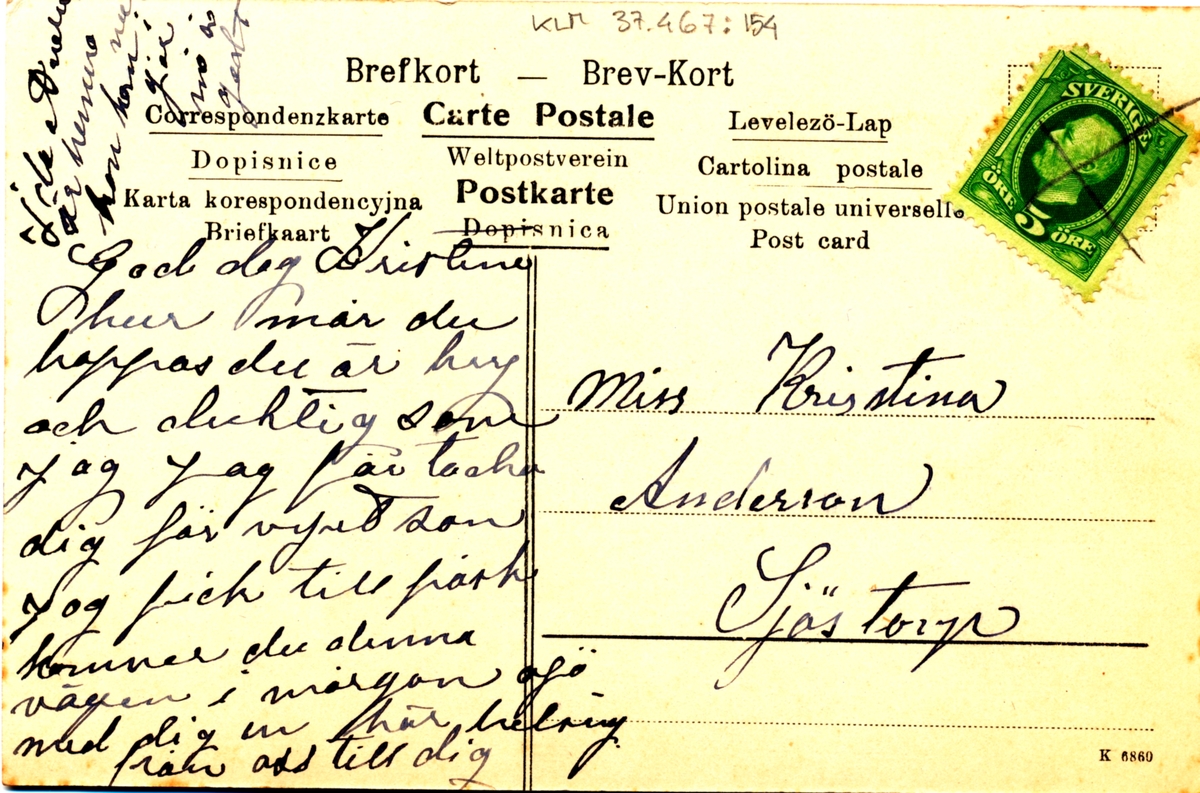 KLM 37.467:154
Brefkort — Brev-Kort
Correspondenzkarte Carte Postale Levelező-Lap
Dopisnice Weltpostverein Cartolina postale
Karta korespondencyjna Postkarte Union postale universelle
Briefkaart Dopisnica Post card
SVERIGE
ÖRE 5 ÖRE
är hemma
hon kom
i går
God dag Kristine
hur mår du
hoppas du är kry
och duktig som
jag Jag får tacka
dig för vyet som
Jag fick till påsk
kommer du denna
vägen i morgon
med dig in här helsing
från oss till dig
Miss Kristina
Anderson
Sjöstorp
K 6860